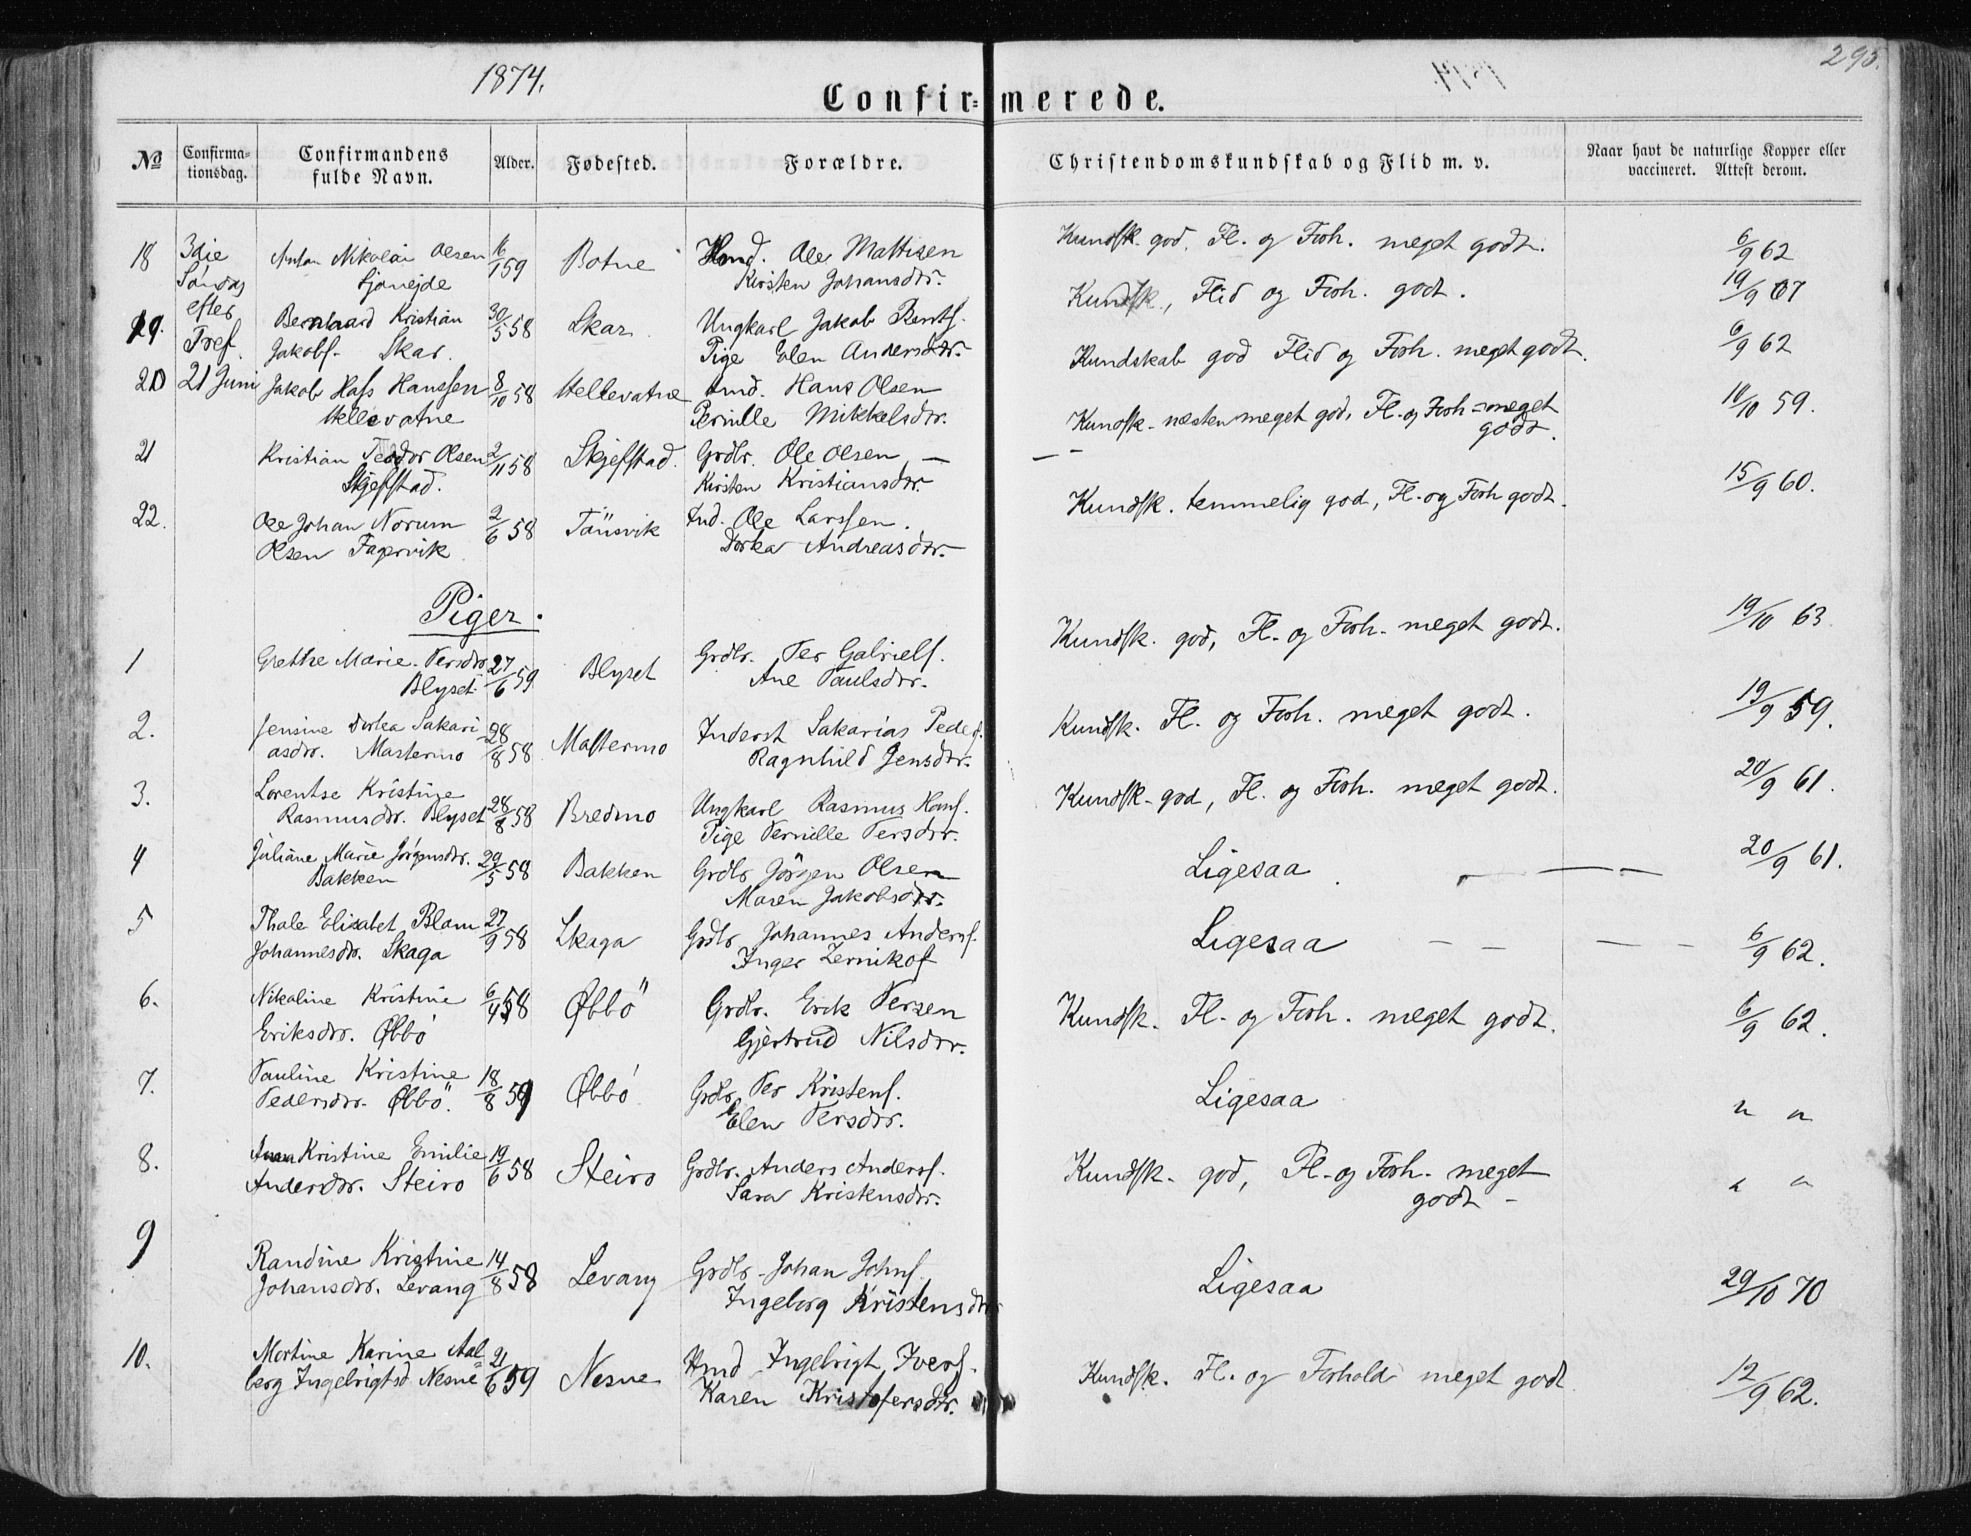 1874.
295.
Confirmerede.
No
Confirma-
tionsdag.
Confirmandens
fulde Navn.
Alder.
Fødested.
Forældre.
Christendomskundskab og Flid m. v.
Naar havt de naturlige Kopper eller
vaccineret. Attest derom.
18 3die Anton Nikolai Olsen 16/1 59 Botne Hmd. Ole Mattisen Kundsk. god, Fl. og Forh. meget godt. 6/9 62
Søndag Sjonejde Kirsten Johansdtr.
efter
19. Tref. Bernhard Kristian 30/5 58 Skar Ungkarl Jakob Bents. Kundsk., Flid og Forh. godt. 19/9 67
Jakobs. Skar. Pige Elen Andersdtr.
20 21 Juni Jakob Hass Hanssen 8/10 58 Hellevatne Hmd. Hans Olsen Kundskab god Flid og Forh. meget godt. 6/9 62
Hellevatne Pernille Mikkelsdtr.
21 Kristian Teodor Olsen 2/11 58 Skjefstad. Grdbr. Ole Olsen Kundsk. næsten meget god, Fl. og Forh. meget 10/10 59.
Skjefstad. Kirsten Kristiansdtr. godt.
22. Ole Johan Norum 2/6 58 Tausvik Ind. Ole Larssen. Kundsk. temmelig god, Fl. og Forh godt. 15/9 60.
Olsen Fagervik Dorka Andreasdtr.
Piger.
1 Grethe Marie Persdtr. 27/6 59 Blyset Grdbr. Per Gabriels. Kundsk. god, Fl. og Forh. meget godt. 19/10 63
Blyset. Ane Paulsdtr.
2. Jensine Dorka Sakari- 28/8 58 Mastermo Inderst Sakarias Peders. Kundsk. Fl. og Forh. meget godt. 19/9 59.
asdtr. Mastermo Ragnhild Jensdtr.
3. Lorentse Kristine 28/8 58 Bredmo Ungkarl Rasmus Hans. Kundsk. god, Fl. og Forh. meget godt. 20/9 61.
Rasmusdtr. Blyset Pige Pernille Persdtr.
4 Juliane Marie Jørgensdtr. 29/5 58 Bakken Grdbr Jörgen Olsen Ligesaa 20/9 61.
Bakken Maren Jakobsdtr.
5 Thale Elisabet Blam 27/9 58 Skaga Grdbr. Johannes Anders. Ligesaa 6/9 62.
Johannesdtr. Skaga Inger Zernikof
6. Nikoline Kristine 6/4 58 Øbbö Grdbr. Erik Persen Kundsk. Fl. og Forh. meget godt. 6/9 62.
Eriksdtr. Øbbö Gjertrud Nilsdtr.
7. Pauline Kristine 18/8 59 Øbbö Grdbr. Per Kristens. Ligesaa " "
Pedersdtr. Øbbö. Elen Persdtr.
8. Kristine Emilie 19/6 58 Steiro Grdbr. Anders Anders. Kundsk. god, Fl. og Forh. meget " "
Andersdtr. Steiro Sara Kristensdtr. godt
9 Randine Kristine 14/8 58 Levang Grdbr. Johan Johns. Ligesaa 29/10 70
Johansdtr. Levang Ingeborg Kristensdtr
10. Martine Karine Aal- 21/6 59 Nesne Hmd Ingebrigt Ivers. Kundsk. Fl. og Forhold meget godt 12/9 62.
berg Ingebrigtsd Nesne Karen Kristofersdtr.